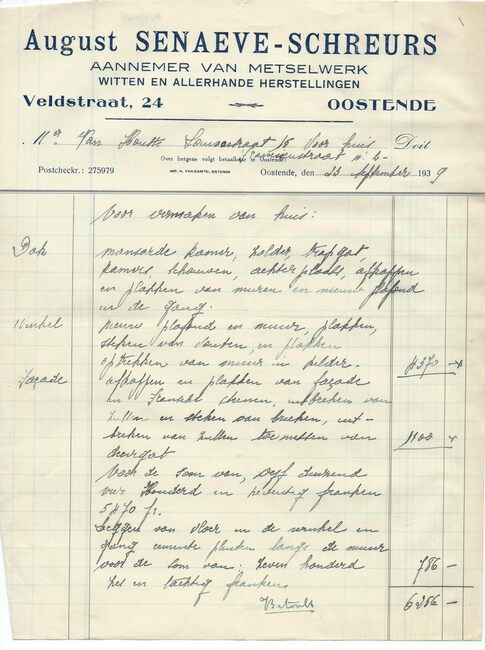 August SENAEVE-SCHREURS
AANNEMER VAN METSELWERK
WITTEN EN ALLERHANDE HERSTELLINGEN
Veldstraat, 24 OOSTENDE
Mr Van Houtte 15 Voor huis Doit
Over hetgene volgt betaalbaar te Oostende:
Postcheckr.: 275979
IMP. H. VAN DAMPO, OSTENDE
Oostende, den 23 September 1939
Voor vermaken van huis:
Dak mansarde kamer, zolder, trapgat,
kamers, schouwen, achterplaats, afkappen
en plakken van muren en nieuw plafond
in de gang.
Winkel nieuw plafond en muur, plakken,
steken van vouten, en plakken
optrekken van muur in kelder. 4370
Façade afkappen en plakken van façade
in Fransche steenen, uitbreken van
zullen en steken van brieken, uit-
breken van zullen toemetsen van 1100
deurgat
Voor de som van, vijf duizend
vier Honderd en zeventig franken
5470 fr.
Leggen van vloer in de winkel en
gang cimente plinten langs de muur
voor de som van: Zeven honderd 786
Zes en tachtig franken
6256
Betaald